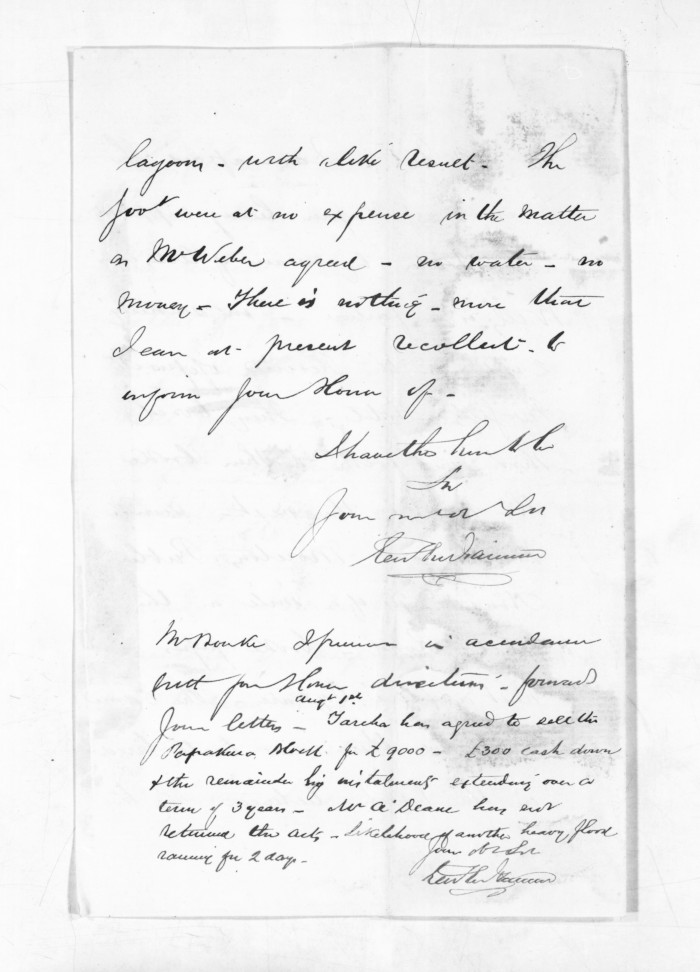 lagoon - with alike result - The
Govt were at no expense in the matter
as Mr Weber agreed - no water - no
money - There is nothing - more that
I can at present recollect - to
inform your Honor of -
I have the honor to be
Sir
Your most obt Svt
Mr Bourke I presume in accordance
with your Honor directions - forwards
Augt 1st
your letters - Tareha has agreed to sell the
Papakura Block for £9000 - £300 cash down
& the remainder by instalments extending over a
term of 3 years - Mr A'Deane has not
returned the acts - Likelihood of another heavy flood
raining for 2 days -
Your Ob Svt